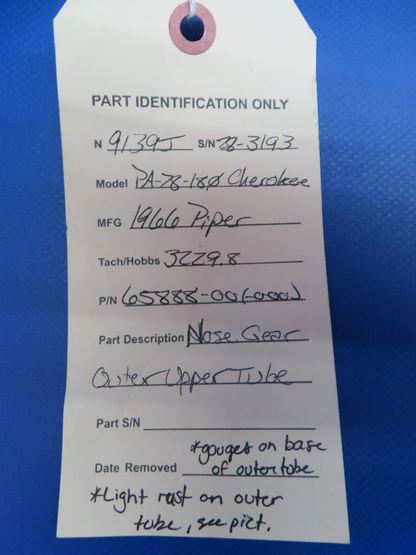 PART IDENTIFICATION ONLY
N 9139J S/N 28-3193
Model PA-28-180 Cherokee
MFG 1966 Piper
Tach/Hobbs 3229.8
P/N 65888-00(-000)
Part Description Nose Gear
Outer Upper Tube
Part S/N
*gouges on base
Date Removed of outer tube
*Light rust on outer
tube, see pict.